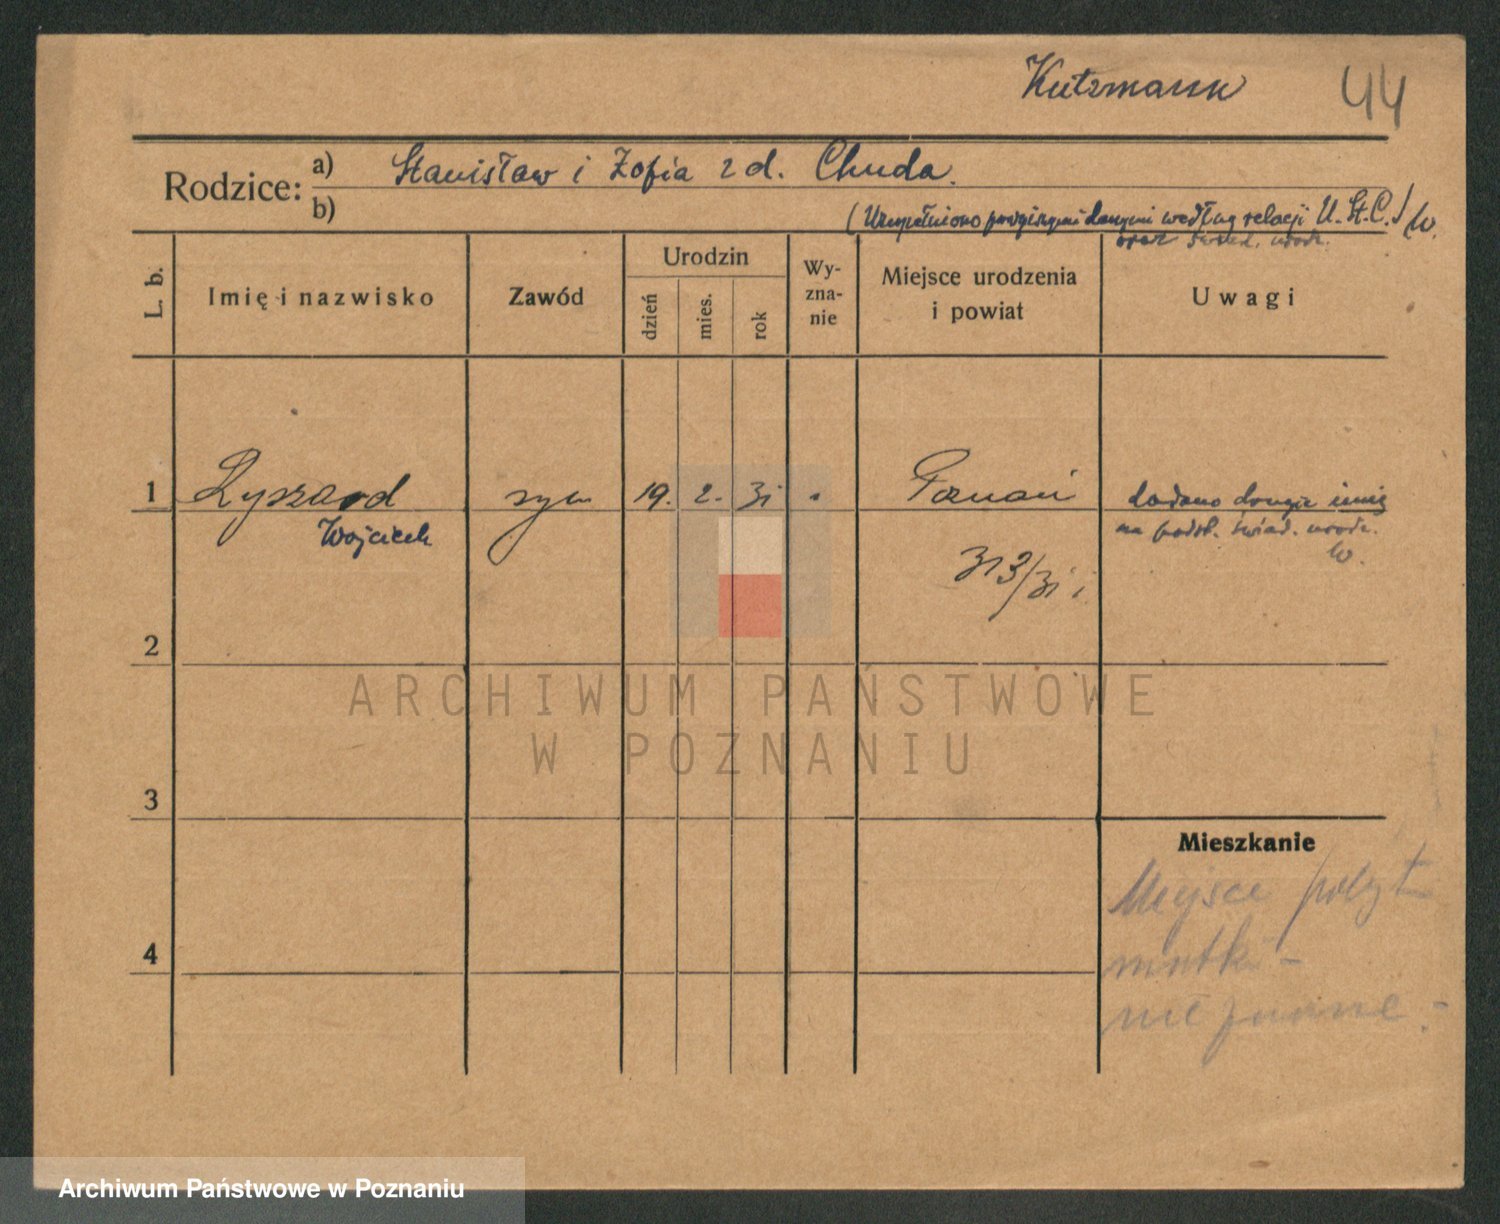 Kutzmann 44
Rodzice: a) Stanisław i Zofia z d. Chuda.
b)
(Uzupełniono powyższymi danymi według relacji U.St.C.) W.
oraz świad. urodz.
L. b.
Imię i nazwisko
Zawód
Urodzin
dzień
mies.
rok
Wy-
zna-
nie
Miejsce urodzenia
i powiat
Uwagi
1 Ryszard syn 19. 2. 31 Poznań dodano drugie imię
Wojciech na podst. świad. urodz.
W.
313/31
2
ARCHIWUM PAŃSTWOWE
W POZNANIU
3
Mieszkanie
Miejsce pobytu
matki -
nie znane.-
4
Archiwum Państwowe w Poznaniu